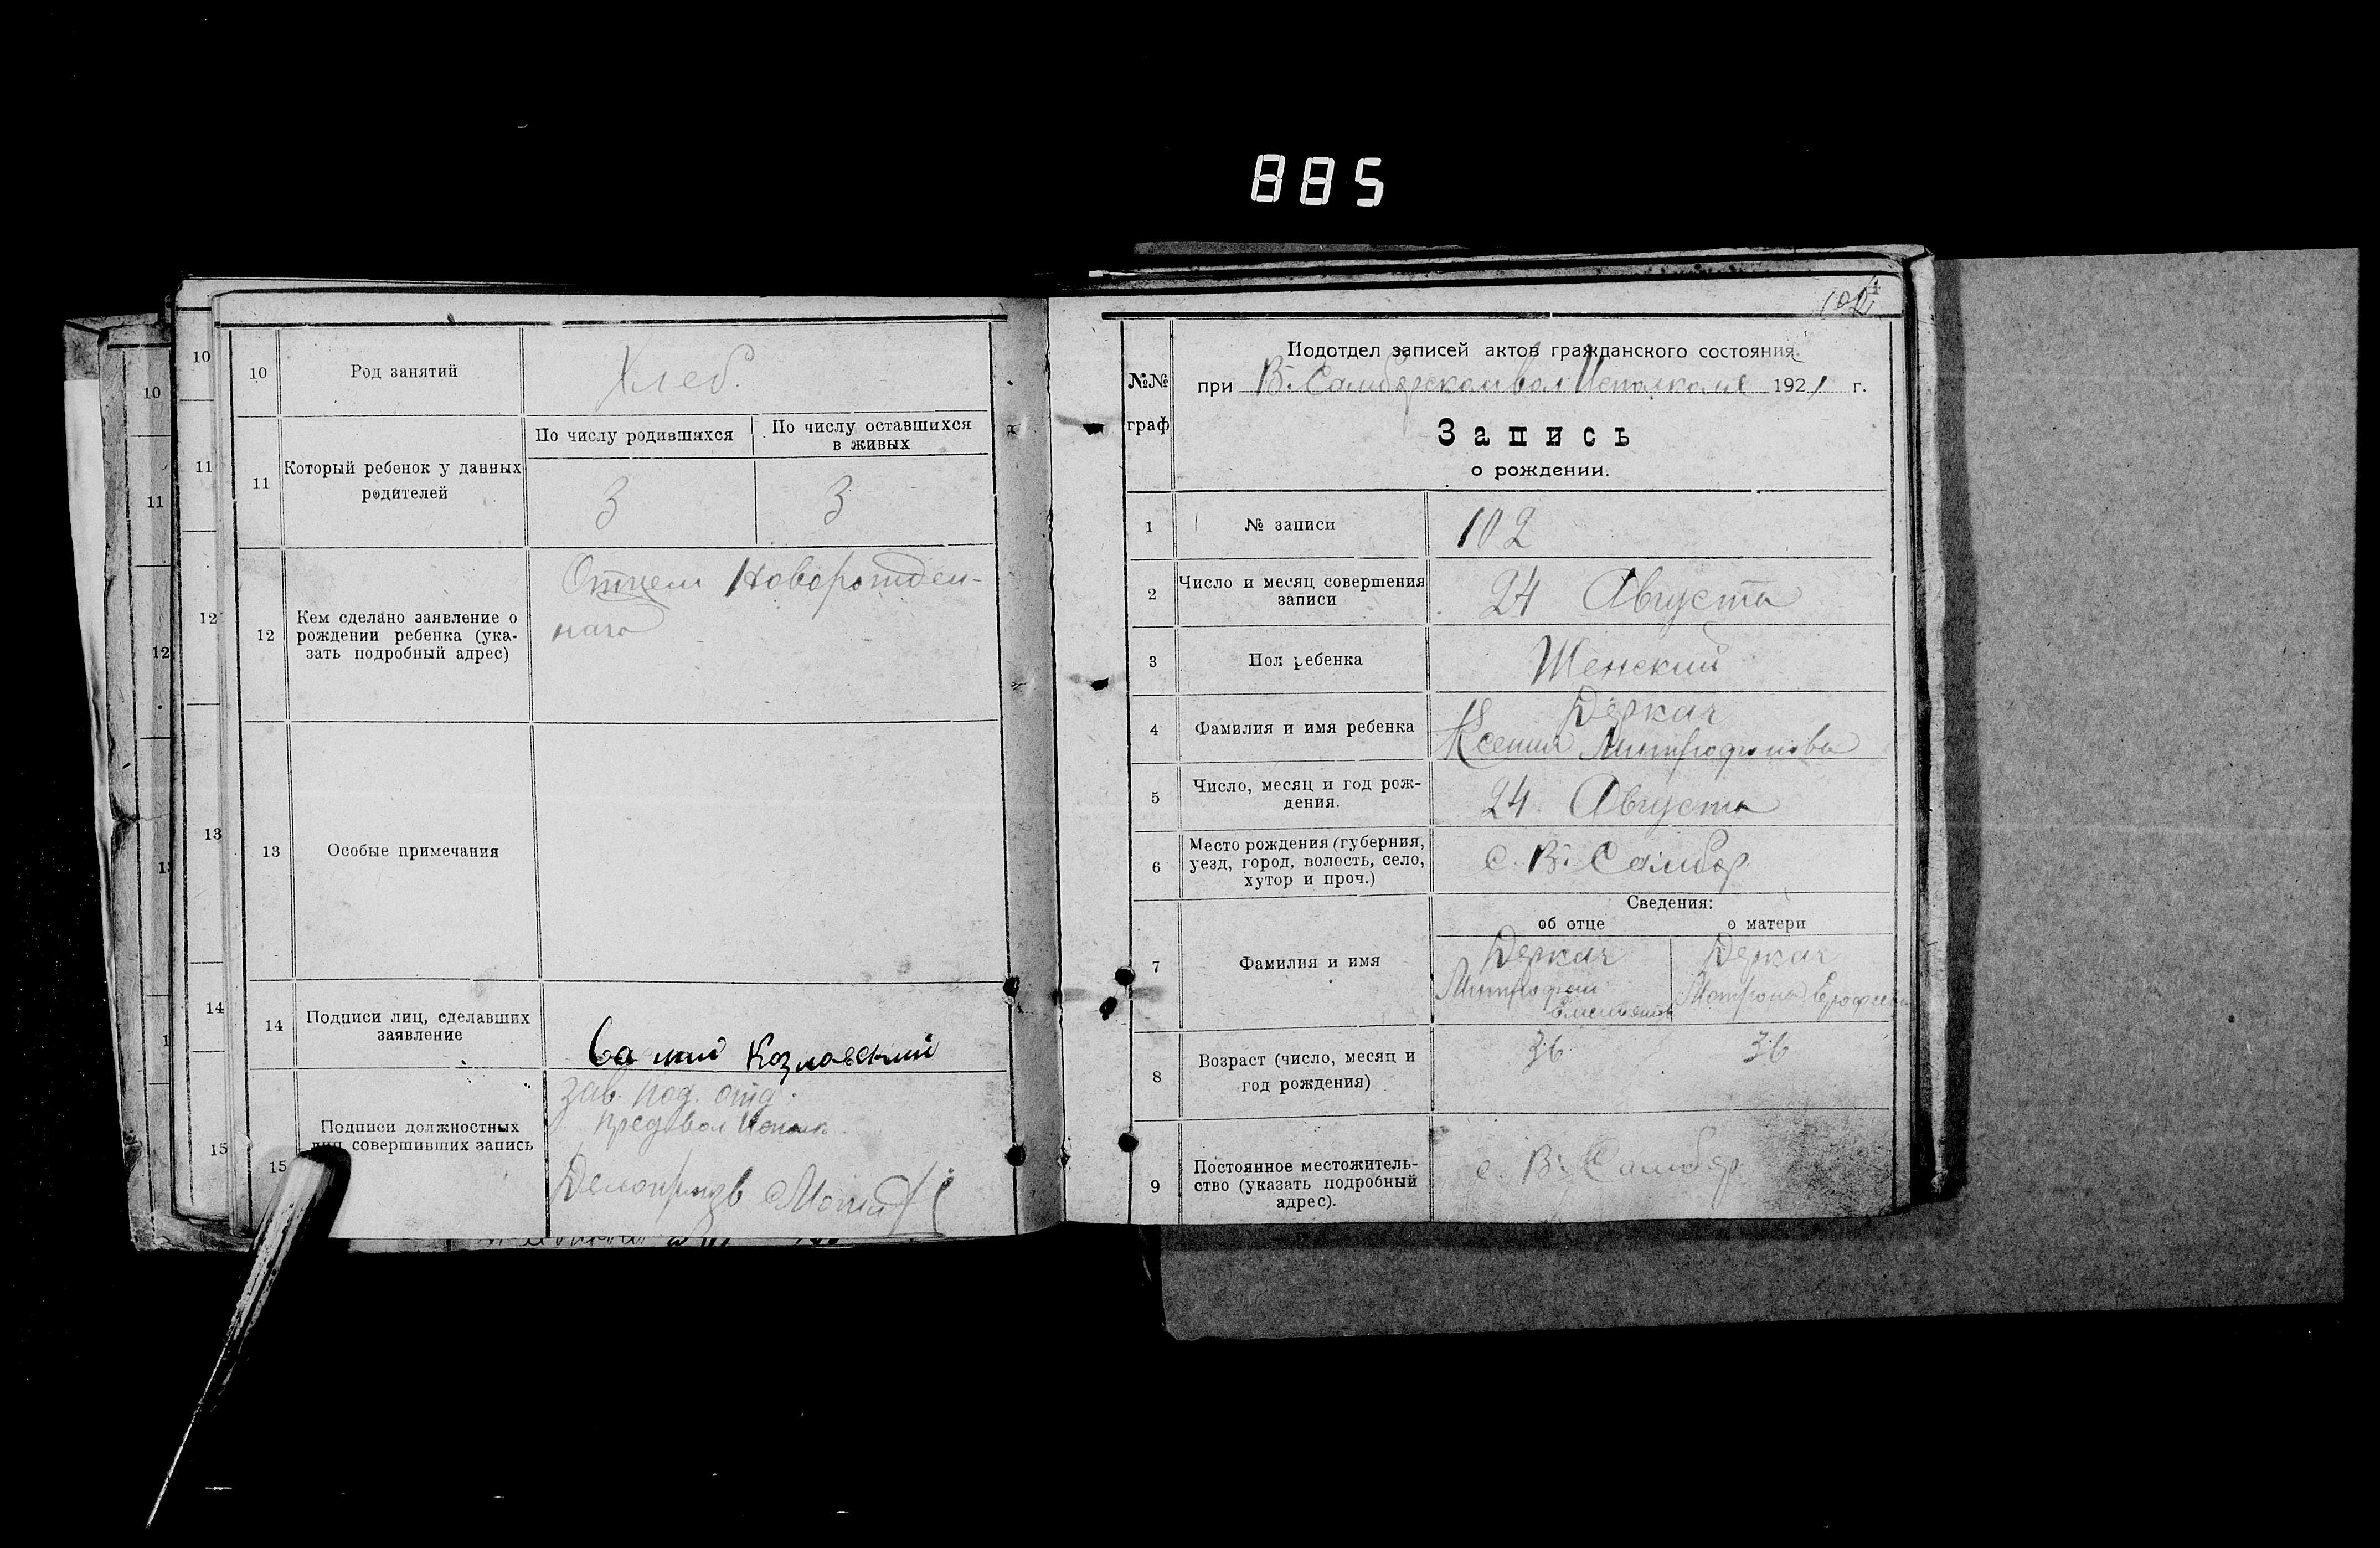 885
10
Род занятий
Хлеб.
11
Который ребенок у данных
родителей
По числу родившихся
По числу оставшихся
в живых
3
3
12
Кем сделано заявление о
рождении ребенка (ука-
зать подробный адрес)
Отцем Новорожден-
наго
13
Особые примечания
14
Подписи лиц, сделавших
заявление
Козловский
15
Подписи должностных
лиц совершивших запись
Зав. под. отд.
предвол Исполк
Делопроизв
10
11
12
13
14
15
10
11
12
102
№№
граф
Подотдел записей актов гражданского состояния
при В. Самборском вол Исполкоме 1921 г.
Запись
о рождении.
1
№ записи
102
2
Число и месяц совершения
записи
24 Августа
3
Пол ребенка
Женский
4
Фамилия и имя ребенка
Деркач
Ксения Митрофанова
5
Число, месяц и год рож-
дения.
24 Августа
6
Место рождения (губерния,
уезд, город, волость, село,
хутор и проч.)
с. В. Самбор
Сведения:
об отце
о матери
7
Фамилия и имя
Деркач
Митрофан
Деркач
Мотрона Ерофеева
8
Возраст (число, месяц и
год рождения)
36
36
9
Постоянное местожитель-
ство (указать подробный
адрес).
с. В. Самбор